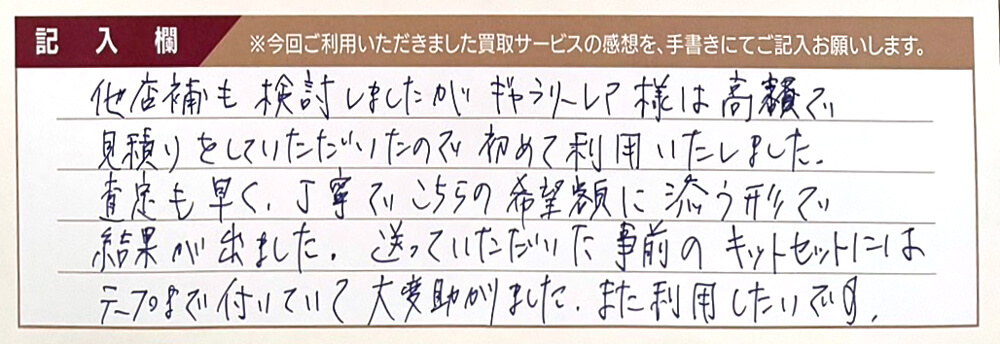 記入欄
※今回ご利用いただきました買取サービスの感想を、手書きにてご記入お願いします。
他店補も検討しましたがギャラリーレア様は高額で
見積りをしていただいたので初めて利用いたしました。
査定も早く、丁寧でこちらの希望額に添う形で
結果が出ました。送っていただいた事前のキットセットには
テープまで付いていて大変助かりました。また利用したいです。